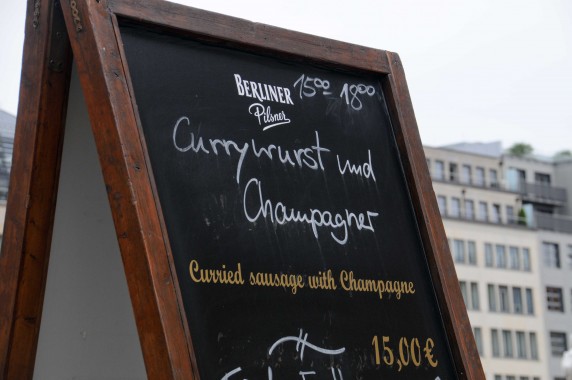 BERLINER 15⁰⁰ 18⁰⁰
Pilsner
Currywurst und
Champagner
Curried sausage with Champagne
15,00€